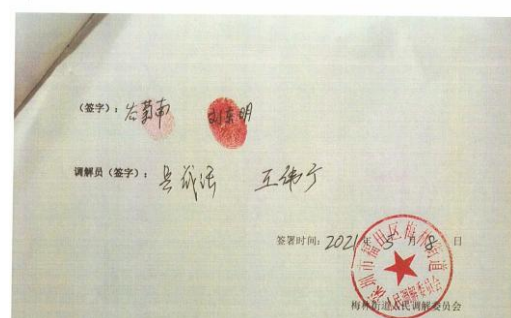 (签字):左菊南 刘东明
调解员(签字):
签署时间:2021年5月8日
深圳市福田区梅林街道
人民调解委员会
梅林街道人民调解委员会